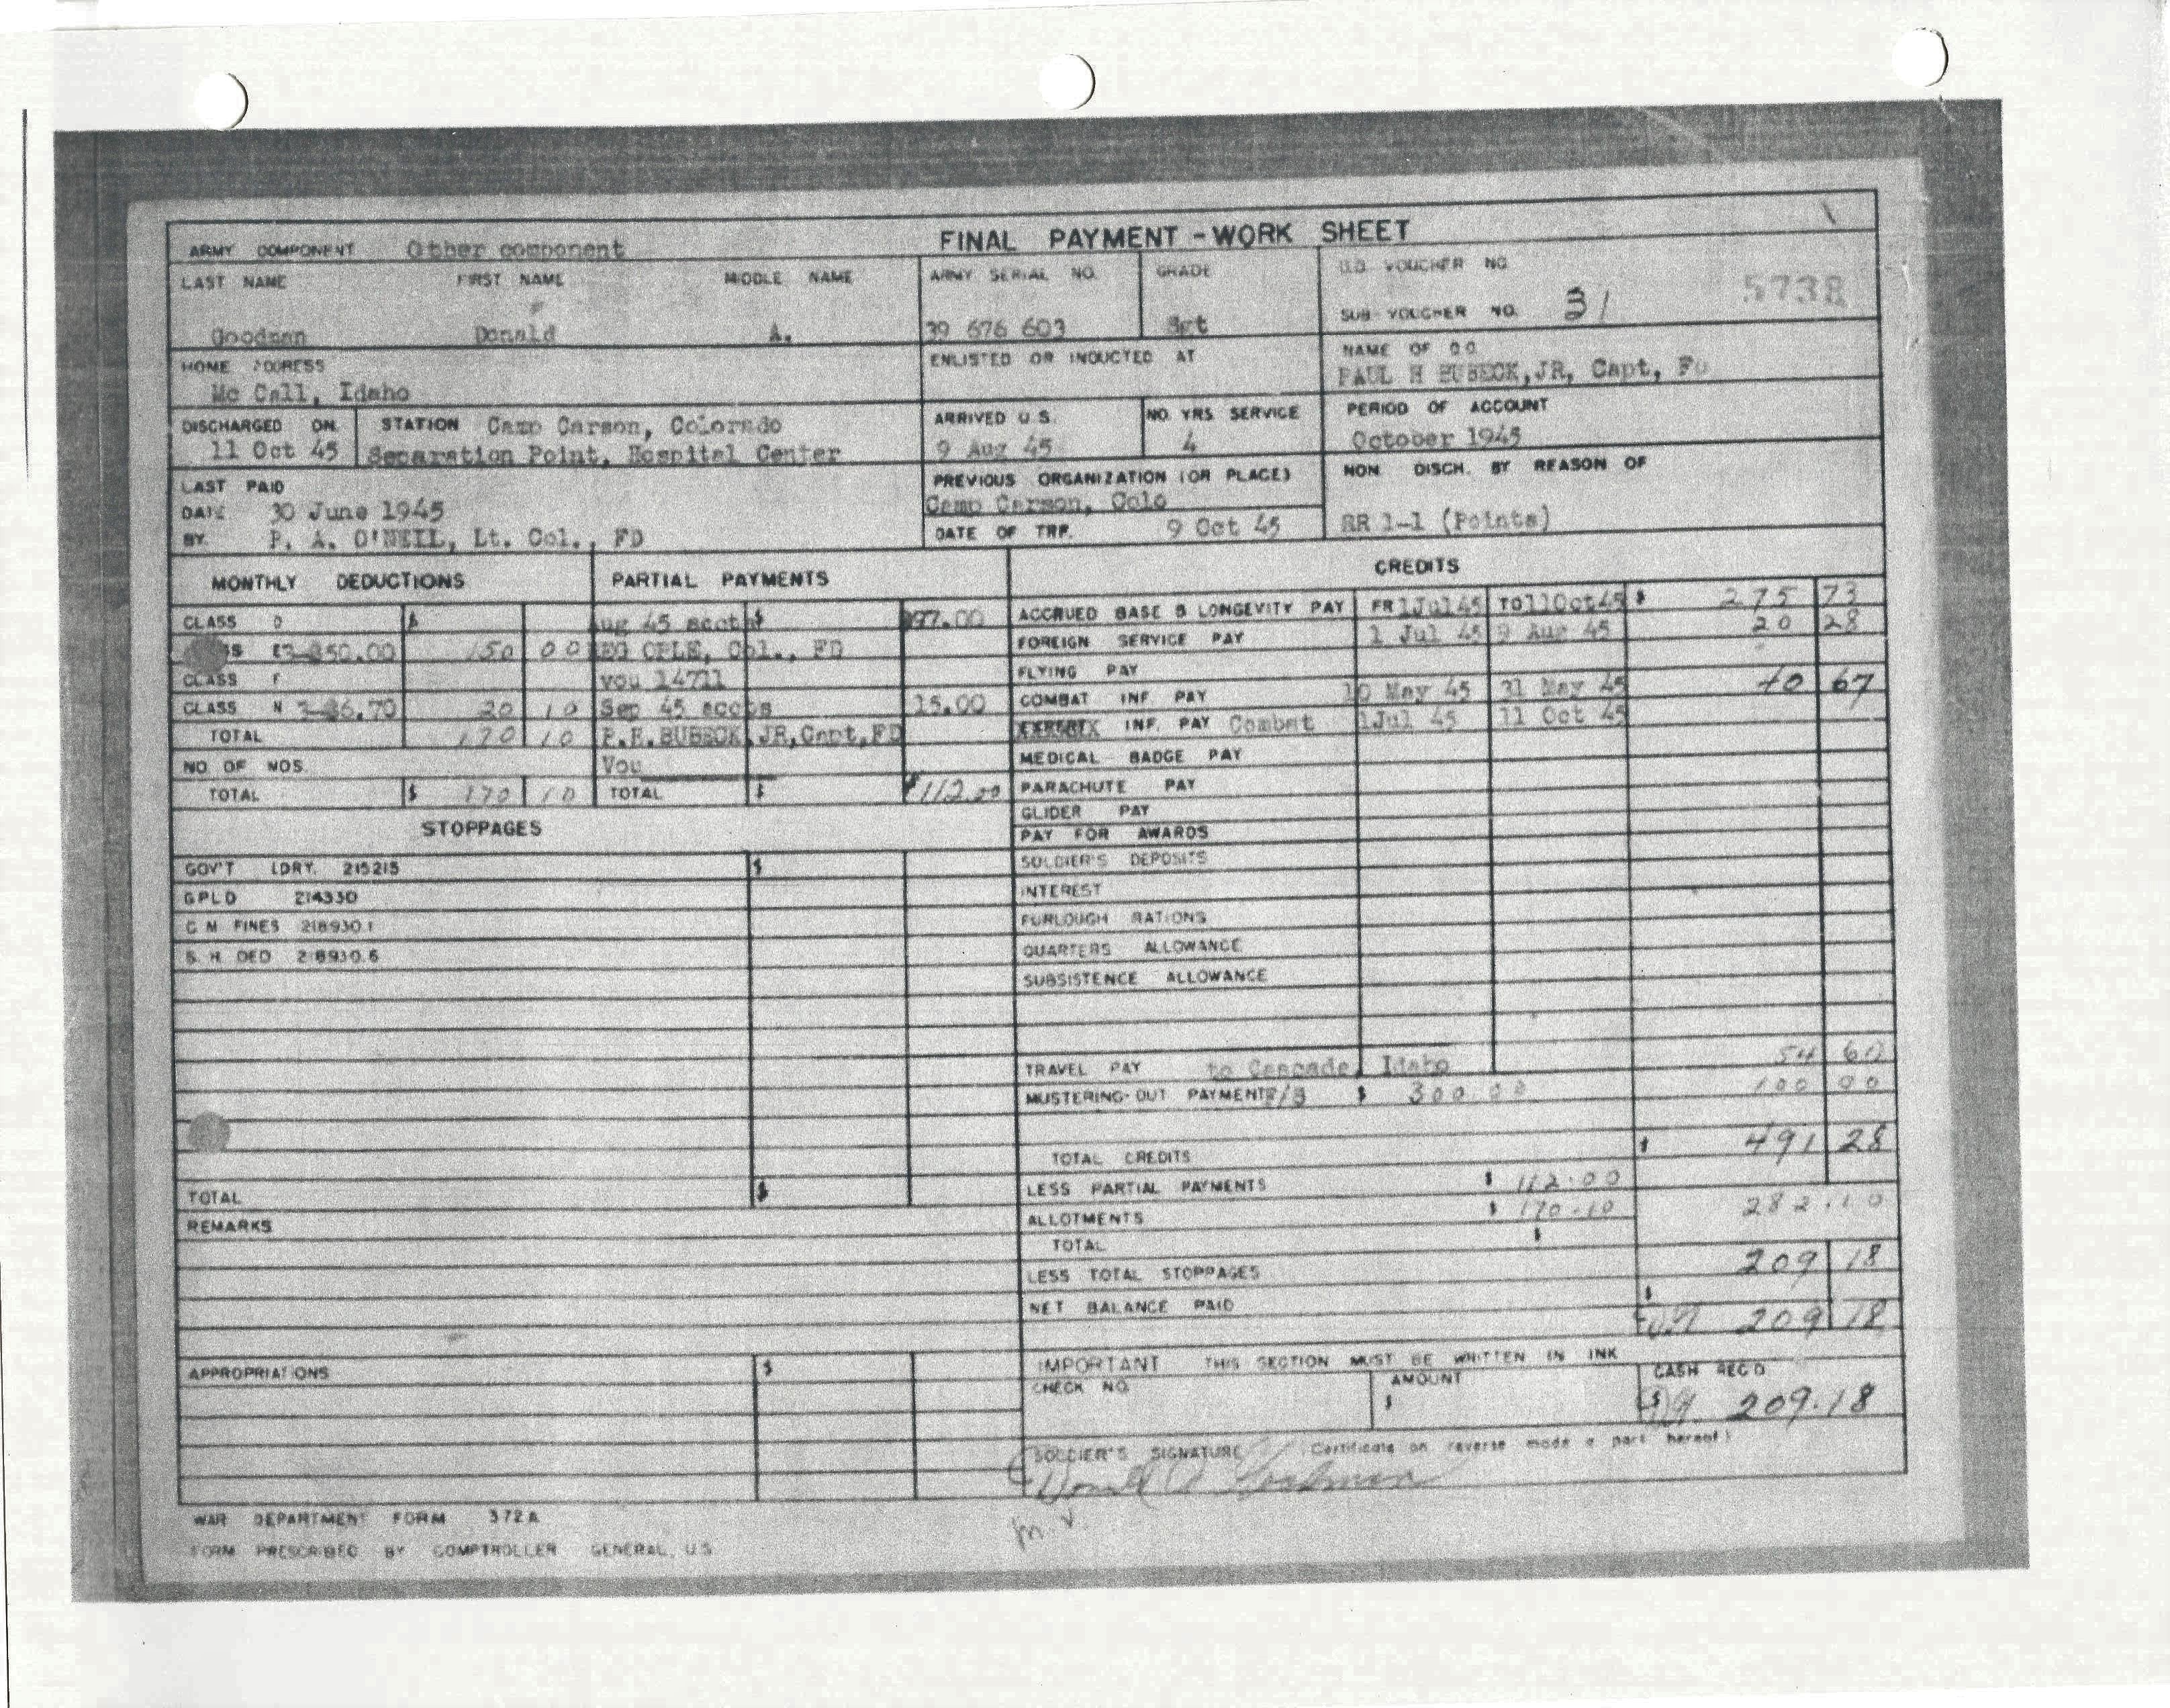 FINAL PAYMENT - WORK SHEET
ARMY COMPONENT Other component
LAST NAME FIRST NAME MIDDLE NAME
Goodman Donald A.
ARMY SERIAL NO. GRADE
39 676 603 Sgt
D.O. VOUCHER NO. 5738
SUB-VOUCHER NO. 31
HOME ADDRESS
Mc Call, Idaho
ENLISTED OR INDUCTED AT
NAME OF D.O.
PAUL H BUBECK, JR, Capt, FD
DISCHARGED ON
11 Oct 45
STATION Camp Carson, Colorado
Separation Point, Hospital Center
ARRIVED U.S.
9 Aug 45
NO. YRS SERVICE
4
PERIOD OF ACCOUNT
October 1945
LAST PAID
DATE 30 June 1945
BY. P. A. O'NEIL, Lt. Col., FD
PREVIOUS ORGANIZATION (OR PLACE)
Camp Carson, Colo
DATE OF TRF. 9 Oct 45
NON. DISCH. BY REASON OF
RR 1-1 (Points)
MONTHLY DEDUCTIONS
CLASS D $
150 00
CLASS F
CLASS N 20 10
TOTAL 170 10
NO OF MOS.
TOTAL $ 170 10
PARTIAL PAYMENTS
Aug 45 accts $ 97.00
Col., FD
vou 14711
Sep 45 accts 15.00
P.H. BUBECK, JR, Capt, FD
Vou
TOTAL $ 112.00
STOPPAGES
GOV'T LDRY. 215215 $
GPLD 214330
C M FINES 218930.1
S. H. DED 218930.6
TOTAL $
REMARKS
APPROPRIATIONS $
CREDITS
ACCRUED BASE & LONGEVITY PAY FR 1 Jul 45 TO 11 Oct 45 $ 275 73
FOREIGN SERVICE PAY 1 Jul 45 9 Aug 45 20 28
FLYING PAY
COMBAT INF. PAY 10 May 45 31 May 45 40 67
INF. PAY Combat 1 Jul 45 11 Oct 45
MEDICAL BADGE PAY
PARACHUTE PAY
GLIDER PAY
PAY FOR AWARDS
SOLDIER'S DEPOSITS
INTEREST
FURLOUGH RATIONS
QUARTERS ALLOWANCE
SUBSISTENCE ALLOWANCE
TRAVEL PAY to Cascade, Idaho 54 60
MUSTERING-OUT PAYMENT F/S $ 300.00 100 00
TOTAL CREDITS $ 491 28
LESS PARTIAL PAYMENTS $ 112.00
ALLOTMENTS $ 170.10 282.10
TOTAL $
209 18
LESS TOTAL STOPPAGES
NET BALANCE PAID $
209 18
IMPORTANT THIS SECTION MUST BE WRITTEN IN INK
CHECK NO. AMOUNT $ CASH REC'D
$ 209.18
SOLDIER'S SIGNATURE (Certificate on reverse made a part hereof)
Donald A Goodman
WAR DEPARTMENT FORM 372A
FORM PRESCRIBED BY COMPTROLLER GENERAL, U.S.